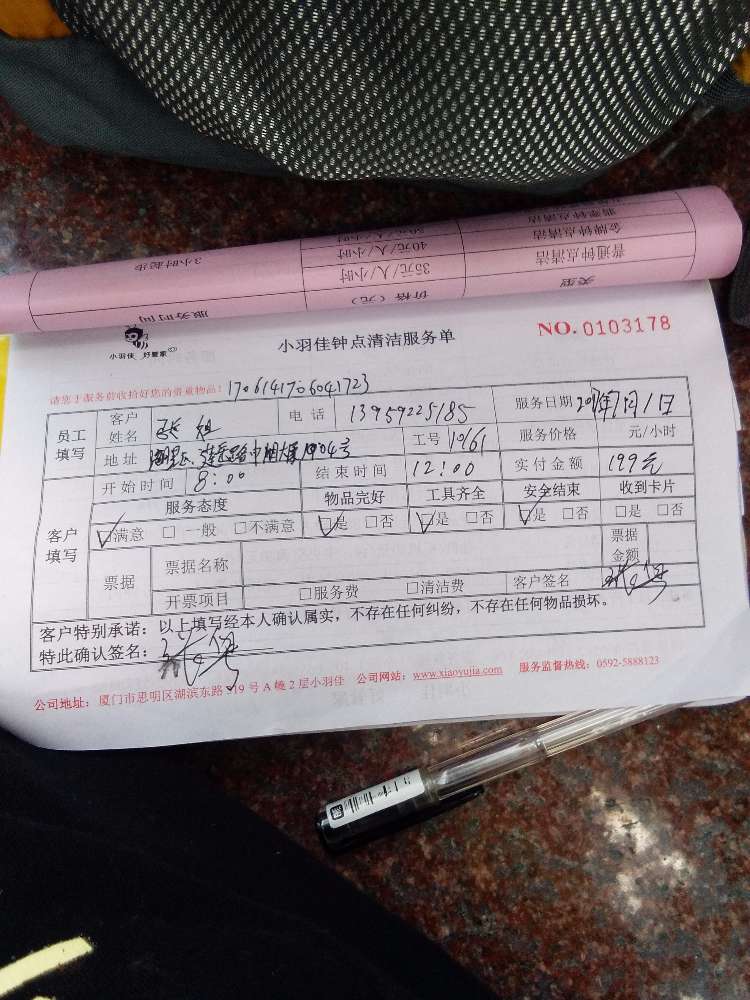 3小时起步
50元/人/小时
金牌钟点清洁
40元/人/小时
普通钟点清洁
35元/人/小时
服务时间
价格(元)
类型
小羽佳 好管家
小羽佳钟点清洁服务单
NO. 0103178
请您于服务前收拾好您的贵重物品!
1706141706041723
员工填写
客户姓名
姐
电话
13959225185
服务日期
2017年7月1日
地址
工号
10161
服务价格
元/小时
客户填写
开始时间
8:00
结束时间
12:00
实付金额
199元
服务态度
物品完好
工具齐全
安全结束
收到卡片
☑满意 □ 一般 □不满意
☑是 □否
☑是 □否
☑是 □否
□是 □否
票据
票据名称
票据金额
开票项目
□服务费
□清洁费
客户签名
客户特别承诺:以上填写经本人确认属实,不存在任何纠纷,不存在任何物品损坏。
特此确认签名:
公司地址:厦门市思明区湖滨东路319号A幢2层小羽佳 公司网站:www.xiaoyujia.com 服务监督热线:0592-5888123